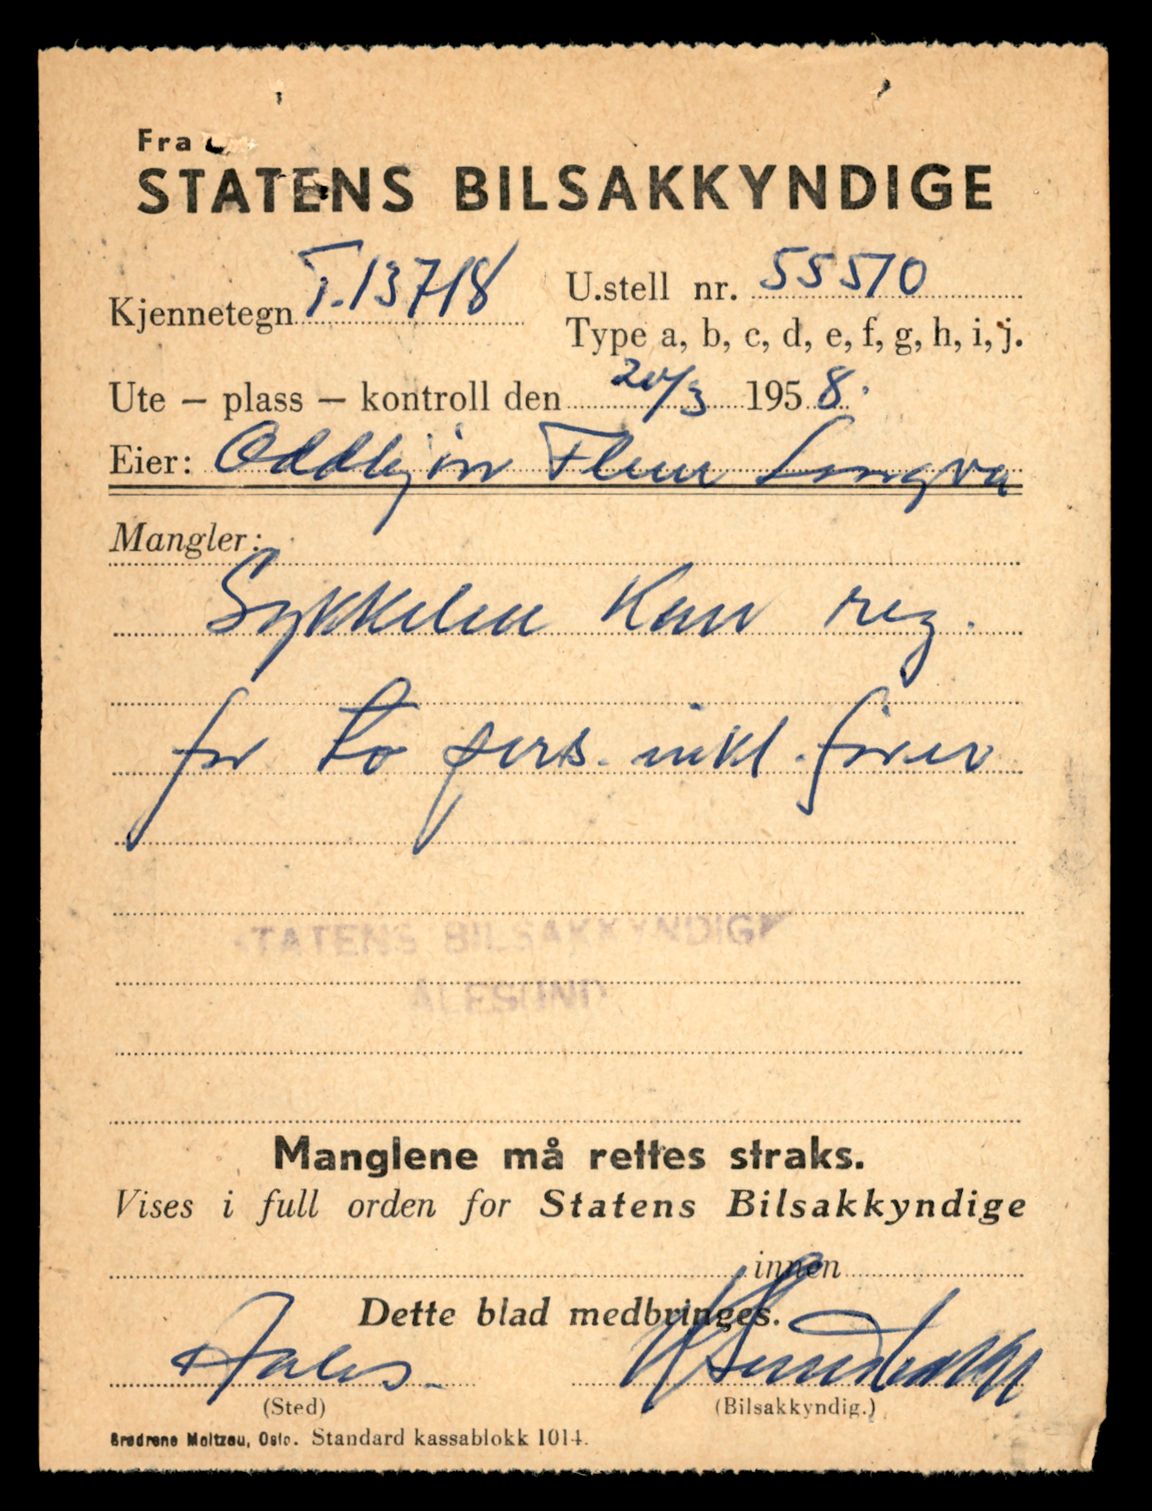 Fra
STATENS BILSAKKYNDIGE
Kjennetegn T.13718 U.stell nr. 55510
Type a, b, c, d, e, f, g, h, i, j.
Ute – plass – kontroll den 20/3 1958.
Eier: Oddbjörn Flem Longva
Mangler:
Sykkelen kan reg.
for to pers. inkl. fører
STATENS BILSAKKYNDIGE
ÅLESUND
Manglene må rettes straks.
Vises i full orden for Statens Bilsakkyndige
innen
Dette blad medbringes.
Aales.
(Sted) (Bilsakkyndig.)
Brødrene Moltzau, Oslo. Standard kassablokk 1014.